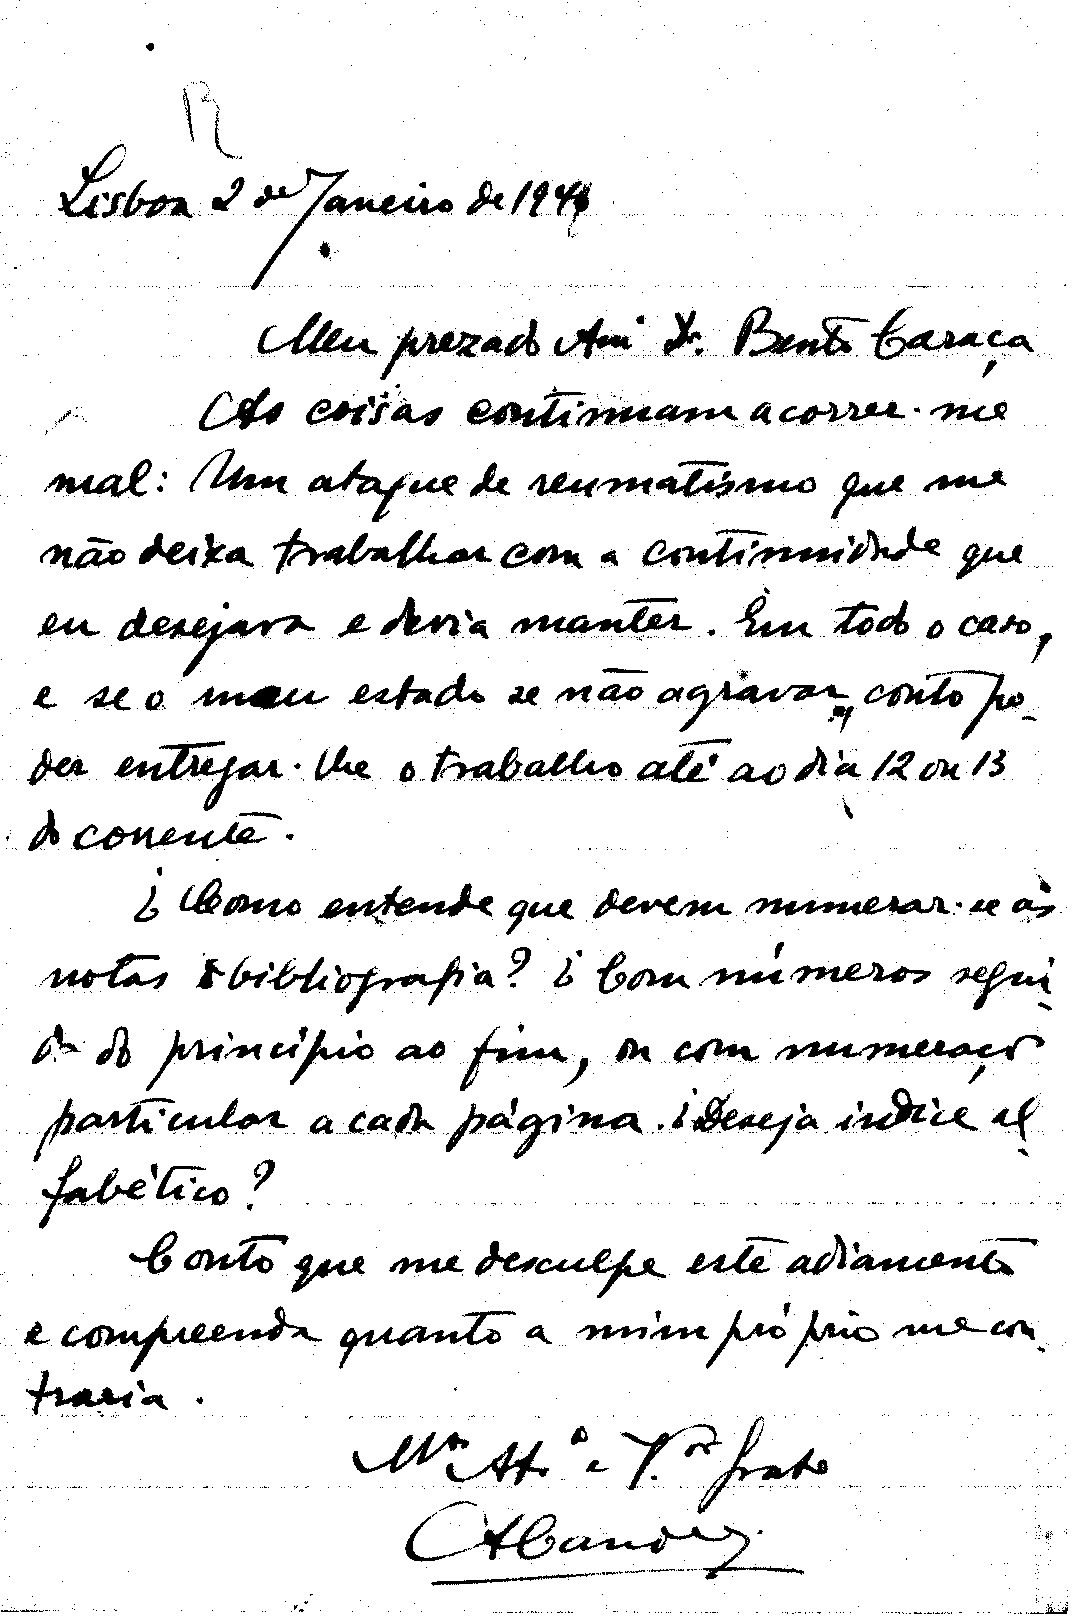 R
Lisboa 2 de Janeiro de 194
Meu prezado Amº Dr. Bento Caraça
As coisas continuam a correr-me
mal: Um ataque de reumatismo que me
não deixa trabalhar com a continuidade que
eu desejava e devia manter. Em todo o caso,
e se o meu estado se não agravar, conto po-
der entregar-lhe o trabalho até ao dia 12 ou 13
do corrente.
¿Como entende que devem numerar-se as
notas e bibliografia? ¿Com números segui-
da do princípio ao fim, ou com numeração
particular a cada página. ¿Deseja indice al-
fabético?
Conto que me desculpe este adiamento
e compreenda quanto a mim próprio me con-
traria.
Mto Atº e V.or grato